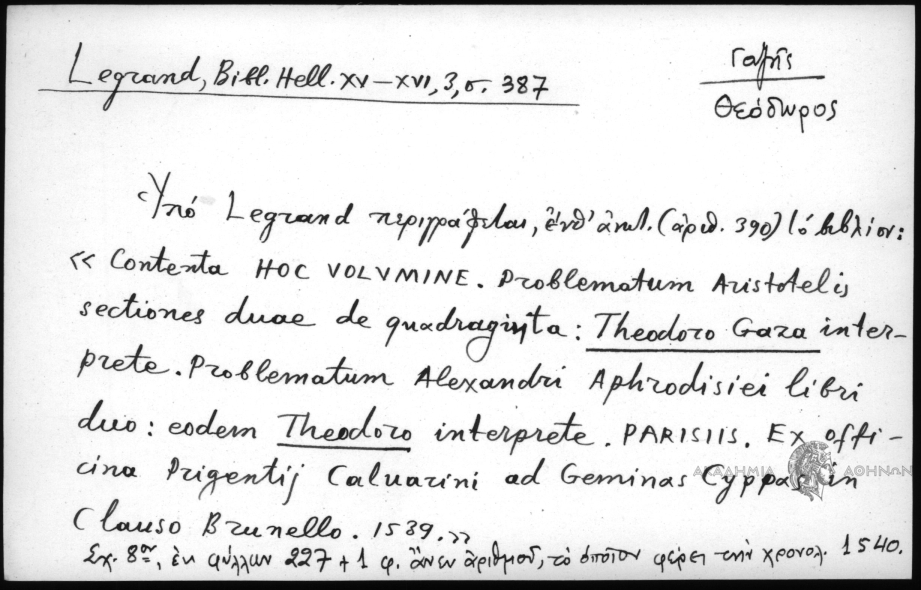 Legrand, Bibl. Hell. XV–XVI, 3, σ. 387
Γαζῆς
Θεόδωρος
Ὑπό Legrand περιγράφεται, ἐνθ' ἀνωτ. (ἀριθ. 390) τό βιβλίον:
«Contenta HOC VOLVMINE. Problematum Aristotelis
sectiones duae de quadraginta: Theodoro Gaza inter-
prete. Problematum Alexandri Aphrodisiei libri
duo: eodem Theodoro interprete. PARISIIS. Ex offi-
cina Prigentij Caluarini ad Geminas Cyppas in
Clauso Brunello. 1539.»
Σχ. 8ον, ἐκ φύλλων 227 + 1 φ. ἄνευ ἀριθμοῦ, τὸ ὁποῖον φέρει τὴν χρονολ. 1540.
ΑΚΑΔΗΜΙΑ ΑΘΗΝΩΝ